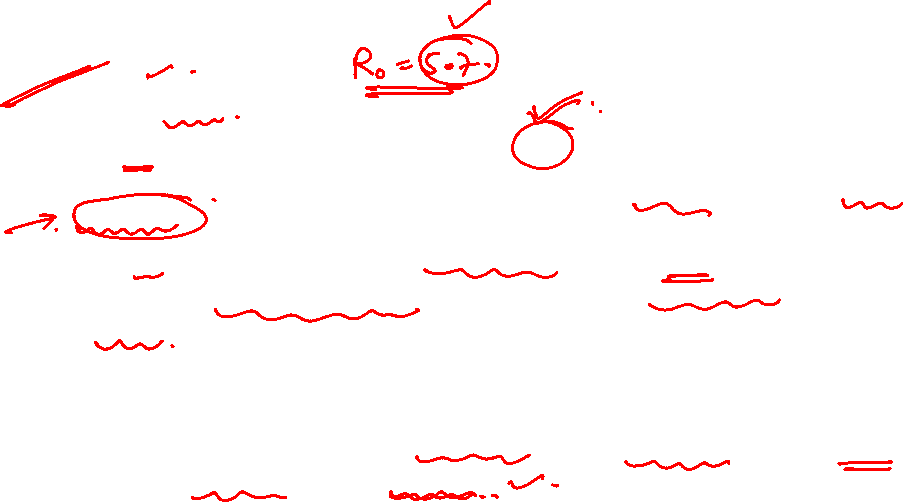 R₀ = 5.7